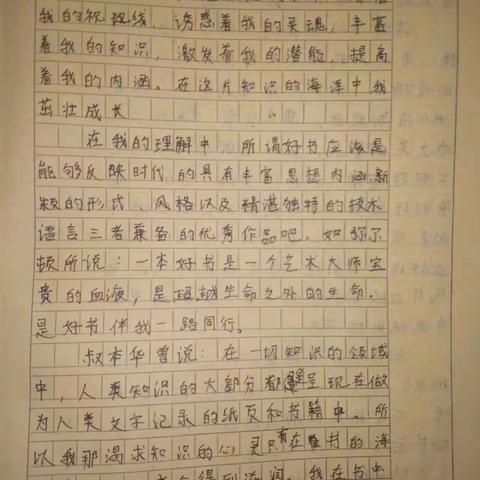 我的视现线，诱惑着我的灵魂，丰富
着我的知识，激发着我的潜能，提高
着我的内涵。在这片知识的海洋中我
茁壮成长
在我的理解中，所谓好书应该是
能够反映时代的具有丰富思想内涵新
颖的形式、风格以及精湛独特的技术
语言三者兼备的优秀作品吧，如弥尔
顿所说：一本好书是一个艺术大师宝
贵的血液，是超越生命之外的生命。
是好书伴我一路同行。
叔本华曾说：在一切知识的领域
中，人类知识的大部分都是呈现在做
为人类文字记录的纸页和书籍中。所
以我那渴求知识的心灵只有在书的海
得到滋润。我在书中